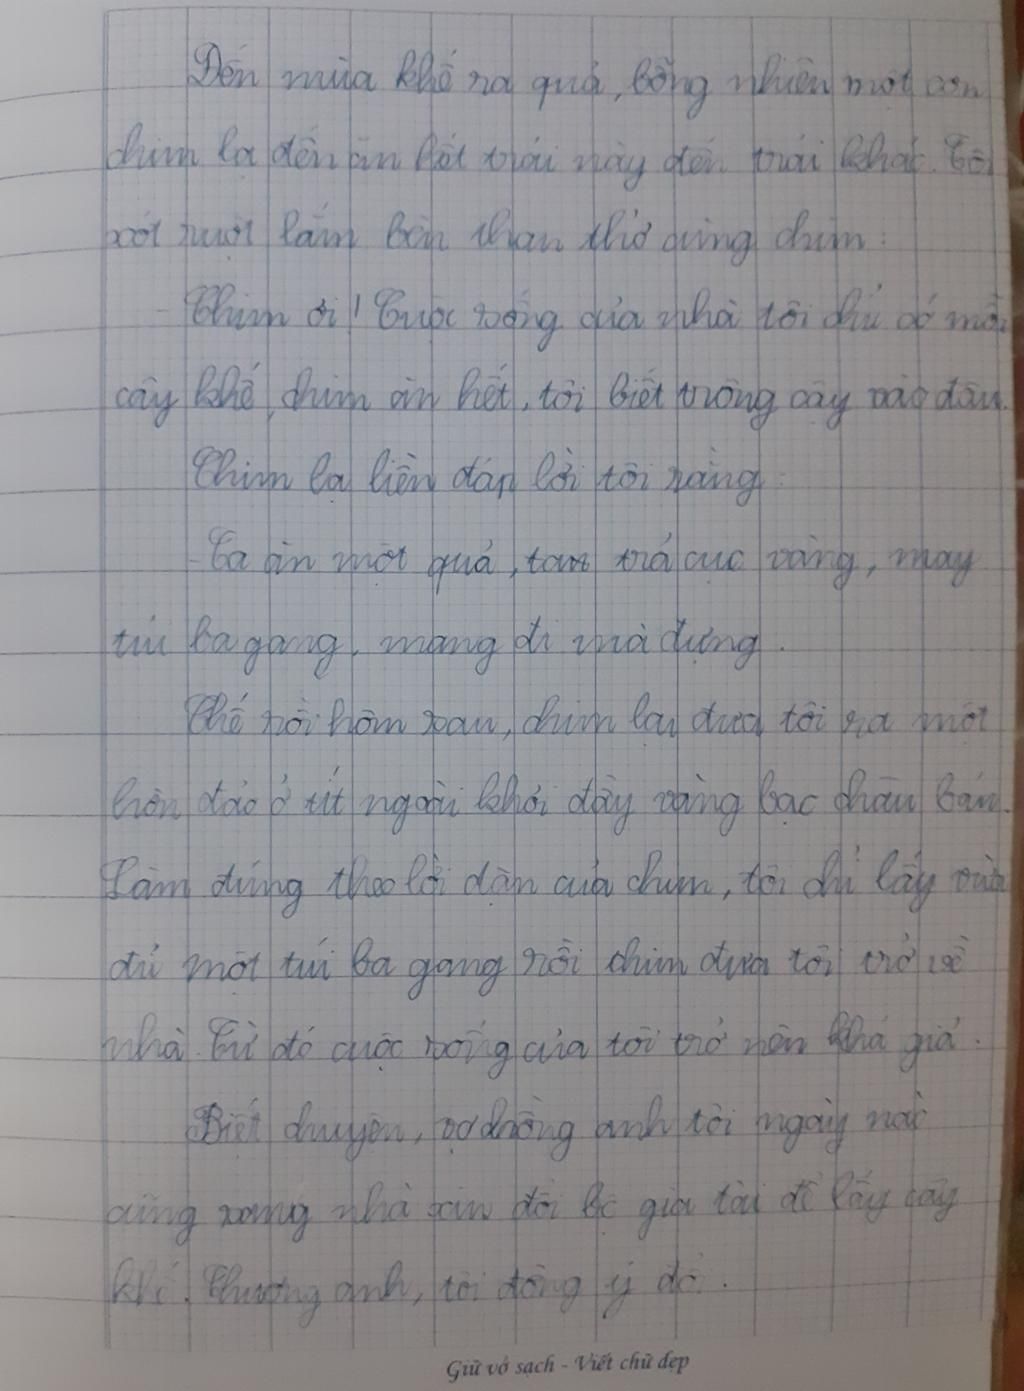 Đến mùa khế ra quả, bỗng nhiên một con
chim lạ đến ăn hết trái này đến trái khác. Tôi
xót ruột lắm bèn than thở cùng chim:
- Chim ơi! Cuộc sống của nhà tôi chỉ có mỗi
cây khế, chim ăn hết, tôi biết trông cậy vào đâu.
Chim lạ liền đáp lời tôi rằng:
- Ta ăn một quả, ta trả cục vàng, may
túi ba gang, mang đi mà đựng.
Thế rồi hôm sau, chim lại đưa tôi ra một
hòn đảo ở tít ngoài khơi đầy vàng bạc châu báu.
Làm đúng theo lời dặn của chim, tôi chỉ lấy vừa
đủ một túi ba gang rồi chim đưa tôi trở về
nhà. Từ đó cuộc sống của tôi trở nên khá giả.
Biết chuyện, vợ chồng anh tôi ngày nào
cũng sang nhà xin đổi cả gia tài để lấy cây
khế. Thương anh, tôi đồng ý đổi.
Giữ vở sạch - Viết chữ đẹp